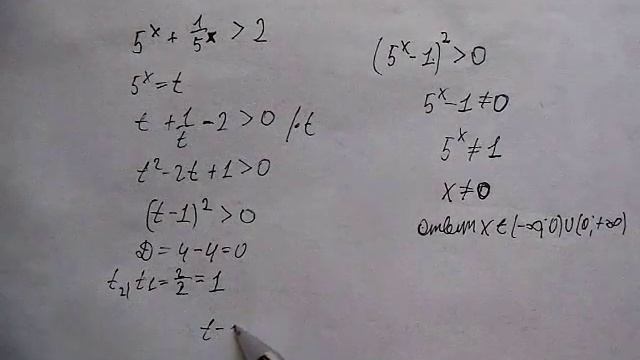 5^x + 1/5^x > 2
5^x = t
t + 1/t - 2 > 0 /·t
t² - 2t + 1 > 0
(t - 1)² > 0
D = 4 - 4 = 0
= 2/2 = 1
t -
(5^x - 1)² > 0
5^x - 1 ≠ 0
5^x ≠ 1
x ≠ 0
Ответ x ∈ (-∞; 0) ∪ (0; +∞)